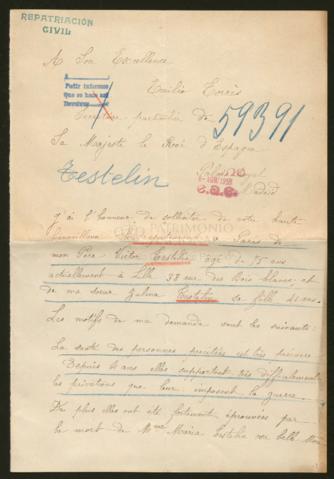 REPATRIACIÓN
CIVIL
A Son Excellence
Emilio Torrès
Pedir informes
Secrétaire particulier de
59391
Sa Majesté le Roi d'Espagne
Palais Royal
Madrid
Testelin
PATRIMONIO
J'ai l'honneur de solliciter de votre haute
bienveillance le rapatriement à Paris de
mon Père Victor Testelin âgé de 75 ans
actuellement à Lille 38 rue des Bois blancs et
de ma soeur Zulma Testelin sa fille 41 ans.
Les motifs de ma demande sont les suivants:
La santé des personnes précitées est très précaire
Depuis 4 ans elles supportent très difficilement
les privations que leur imposent la guerre.
De plus elles ont été fortement éprouvées par
la mort de Mme Maria Testelin sa belle